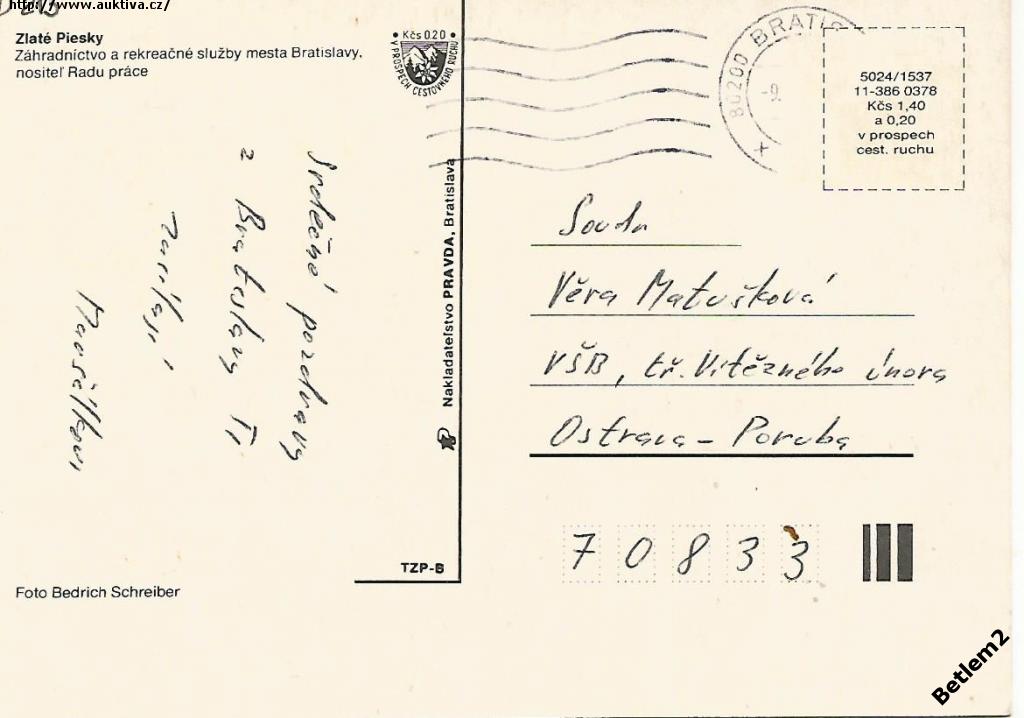 http://www.auktiva.cz/
Zlaté Piesky
Záhradníctvo a rekreačné služby mesta Bratislavy,
nositeľ Radu práce
• Kčs 0.20 •
V PROSPECH CESTOVNÉHO RUCHU
80200 BRATIS
5024/1537
11-386 0378
Kčs 1,40
a 0,20
v prospech
cest. ruchu
Srdečné pozdravy
z Bratislavy Ti
zasílají
Nakladateľstvo PRAVDA, Bratislava
Věra Matušková
VŠB, tř. Vítězného února
Ostrava - Poruba
70833
TZP-B
Foto Bedrich Schreiber
Betlem2